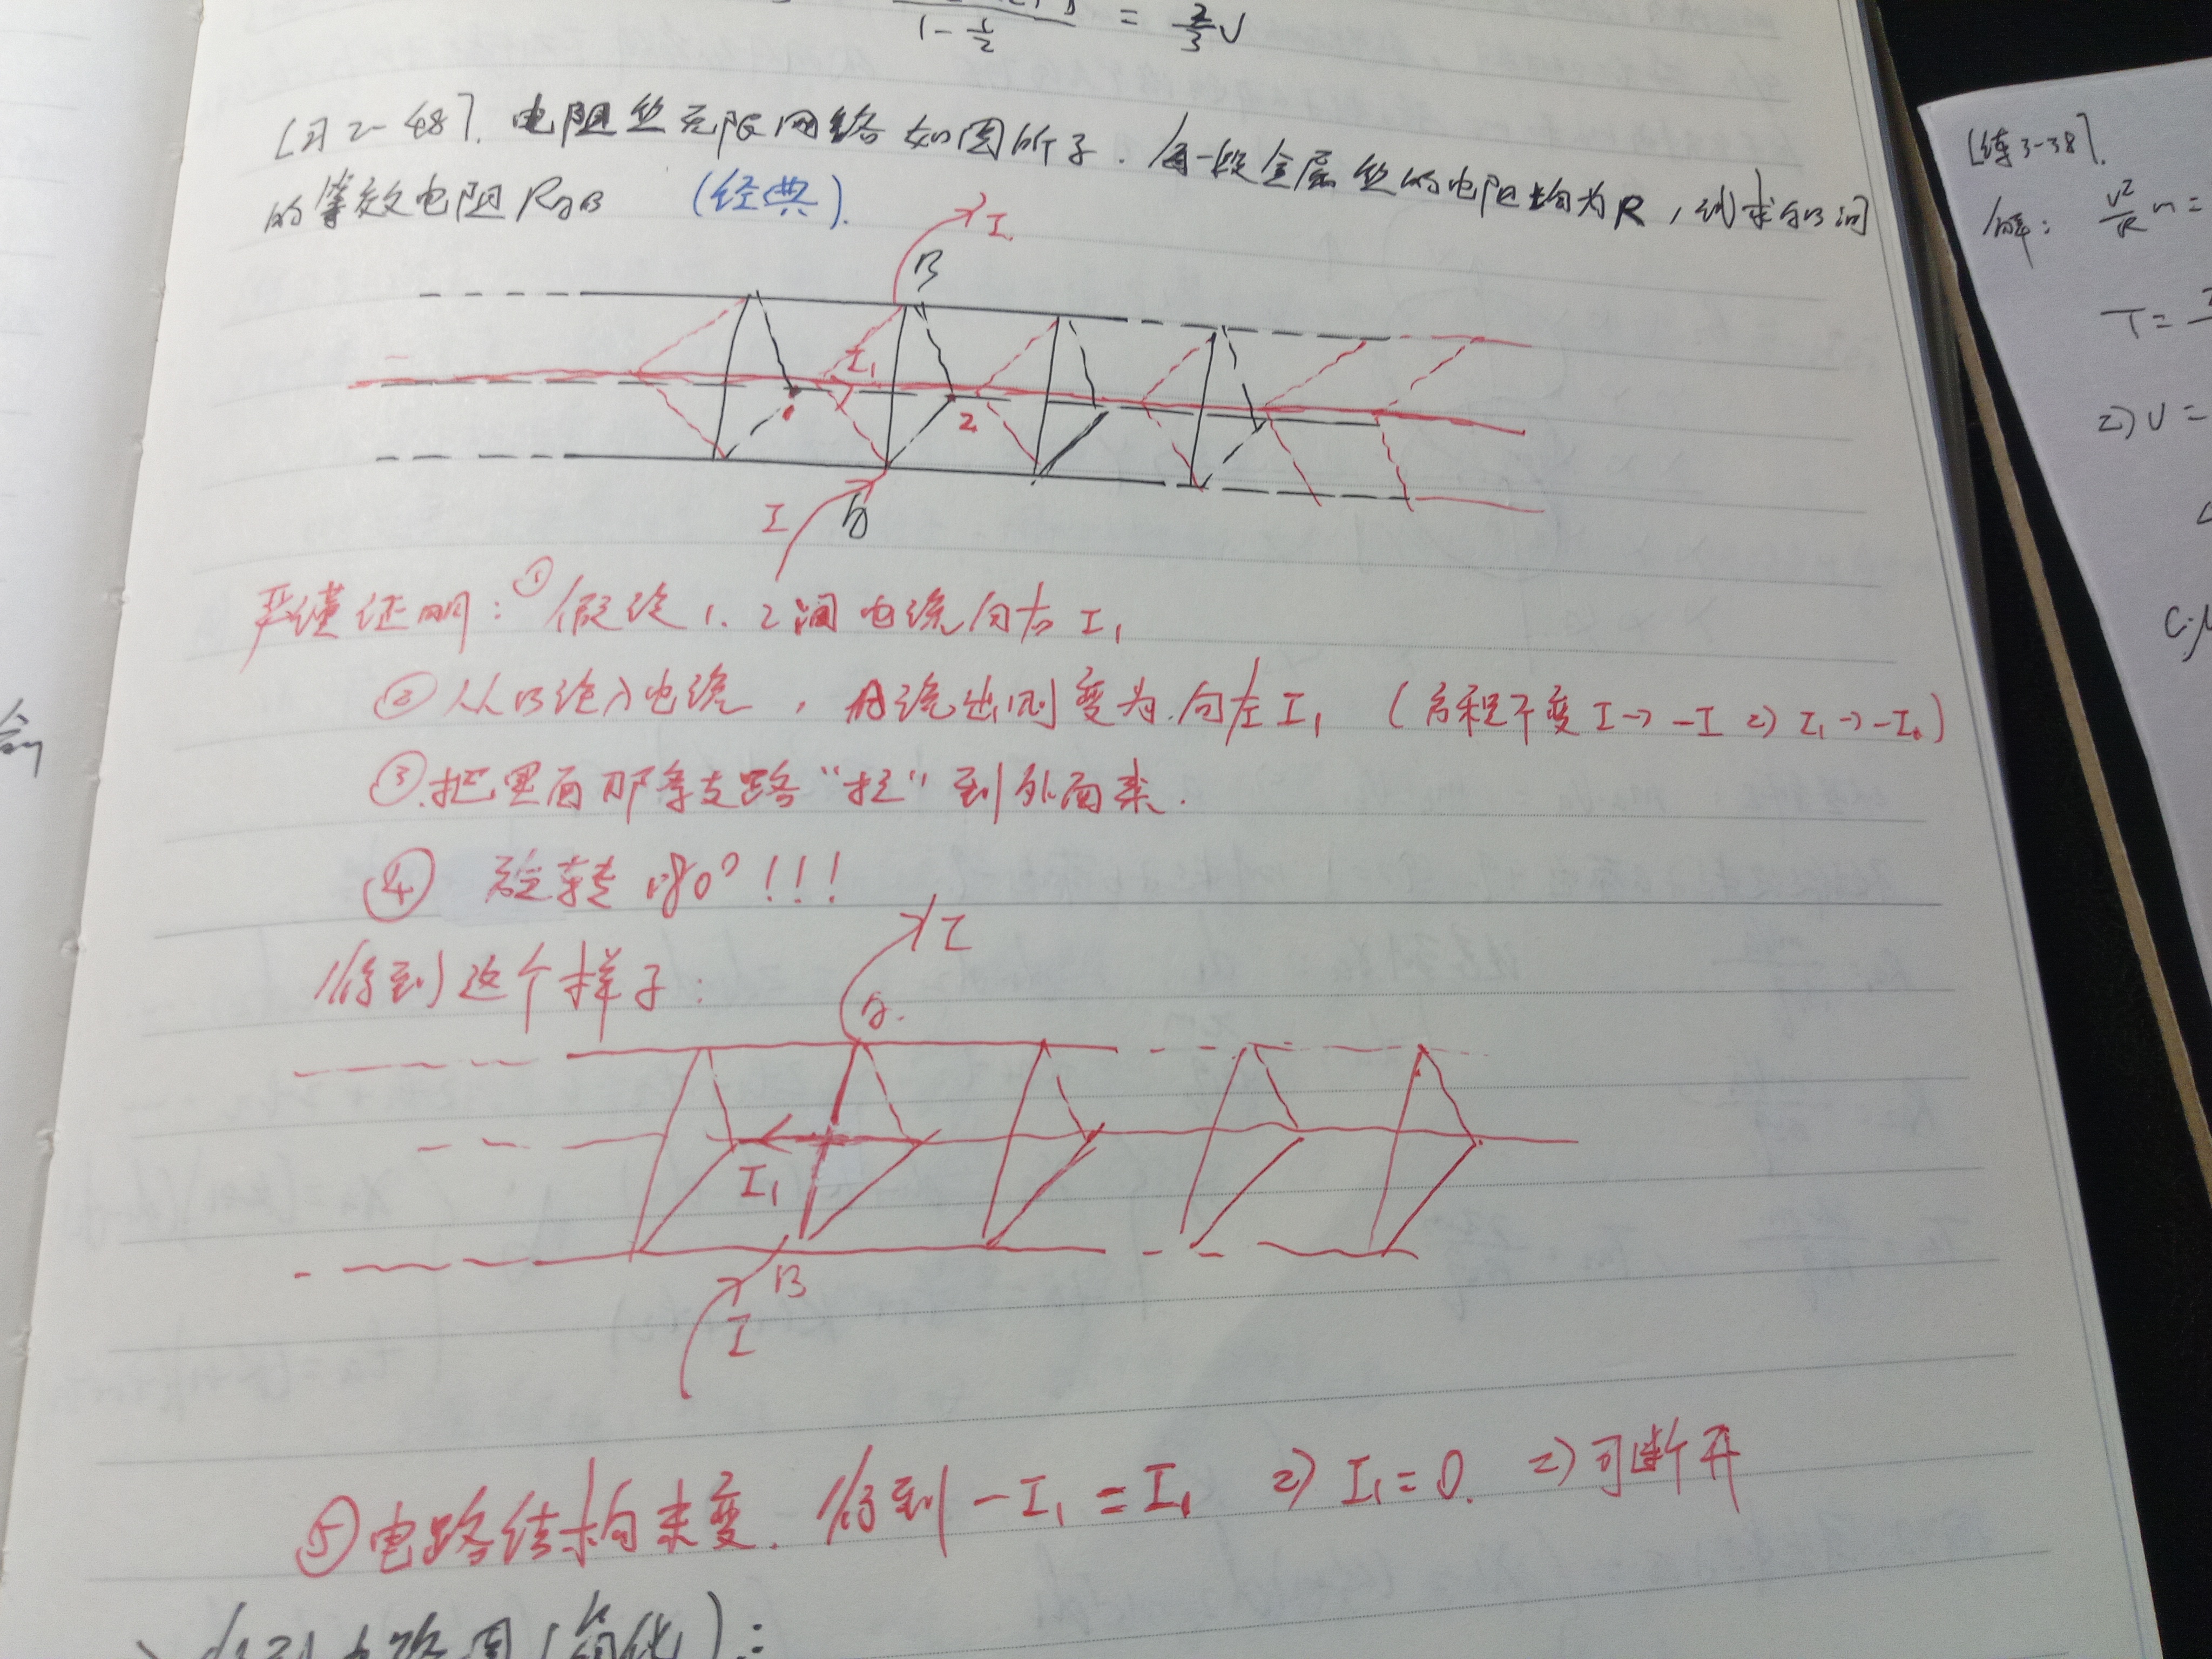 1-½ = ⅔U
[习2-48]. 电阻丝无限网络如图所示. 每一段金属丝的电阻均为R, 试求AB间
的等效电阻RAB (经典).
I
B
I₁
1
2
I
A
严谨证明: ①假设1、2间电流向右I₁
②从B流入电流, A流出则变为向左I₁ (方程不变 I→-I ⇒ I₁→-I₁)
③.把里面那条支路“拉”到外面来.
④ 旋转180°!!!
得到这个样子:
I
A.
I₁
B
I
⑤电路结构未变. 得到 -I₁=I₁ ⇒ I₁=0. ⇒可断开
[练3-38].
解: v²/R m=
T=
2) U=